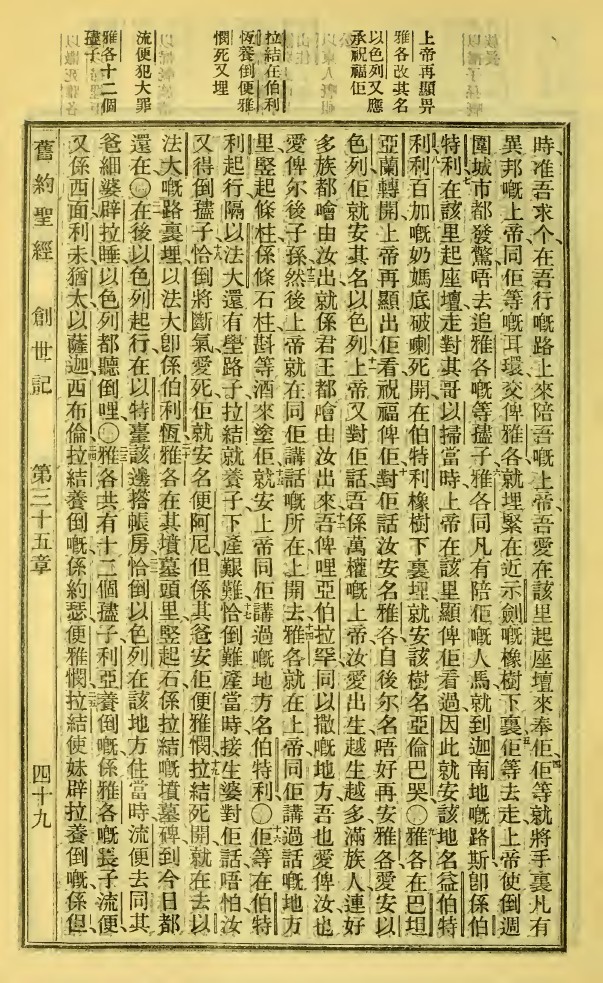 上帝再顯畀
雅各改其名
以色列又應
承祝福佢
拉結在伯利
恆養倒便雅
憫死又埋
流便犯大罪
雅各十二個
孻子
時准吾求个在吾行嘅路上來陪吾嘅上帝吾愛在該里起座壇來奉佢佢等就將手裏凡有
異邦嘅上帝同佢等嘅耳環交俾雅各就埋緊在近示劍嘅橡樹下裏佢等去走上帝使倒週
圍城市都發驚唔去追雅各嘅等孻子雅各同凡有陪佢嘅人馬就到迦南地嘅路斯卽係伯
特利在該里起座壇走對其哥以掃當時上帝在該里顯俾佢看過因此就安該地名益伯特
利利百加嘅奶媽底破喇死開在伯特利橡樹下裏埋就安該樹名亞倫巴哭〇雅各在巴坦
亞蘭轉開上帝再顯出佢看祝福俾佢對佢話汝安名雅各自後尔名唔好再安雅各愛安以
色列佢就安其名以色列上帝又對佢話吾係萬權嘅上帝汝愛出生越生越多滿族人連好
多族都噲由汝出就係君王都噲由汝出來吾俾哩亞伯拉罕同以撒嘅地方吾也愛俾汝也
愛俾尔後子孫然後上帝就在同佢講話嘅所在上開去雅各就在上帝同佢講過話嘅地方
里竪起條柱係條石柱斟等酒來塗佢就安上帝同佢講過嘅地方名伯特利〇佢等在伯特
利起行隔以法大還有壆路子拉結就養子下產艱難恰倒難產當時接生婆對佢話唔怕汝
又得倒孻子恰倒將斷氣愛死佢就安名便阿尼但係其爸安佢便雅憫拉結死開就在去以
法大嘅路裏埋以法大卽係伯利恆雅各在其墳墓頭里竪起石係拉結嘅墳墓碑到今日都
還在〇在後以色列起行在以特臺該邊搭帳房恰倒以色列在該地方住當時流便去同其
爸細婆辟拉睡以色列都聽倒哩〇雅各共有十二個孻子利亞養倒嘅係雅各嘅長子流便
又係西面利未猶太以薩迦西布倫拉結養倒嘅係約瑟便雅憫拉結使妹辟拉養倒嘅係但
舊約聖經 創世記 第三十五章 四十九